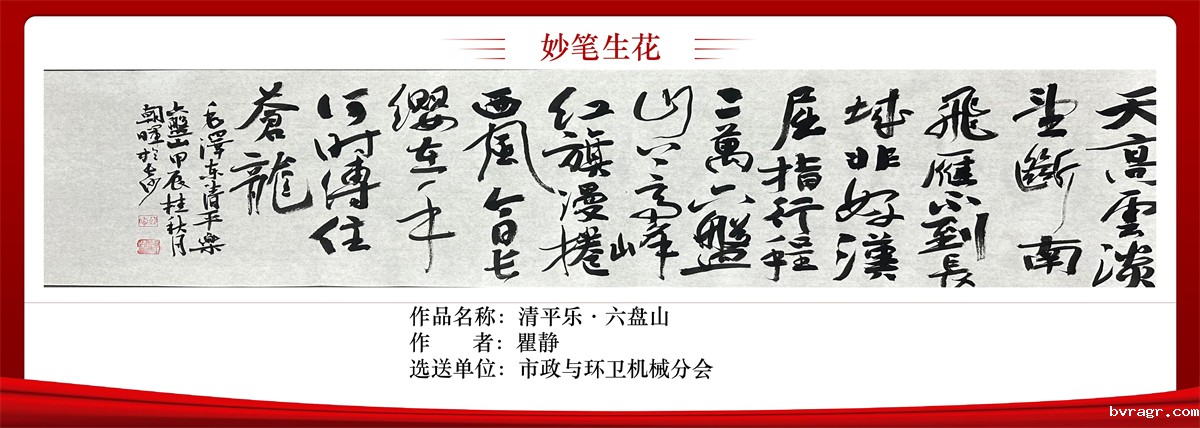 妙笔生花
天高雲淡
望斷南
飛雁不到長
城非好漢
屈指行程
二萬六盤
山上高峰
红旗漫捲
西風今日长
缨在手
何时縛住
蒼龍
毛澤东清平樂
六盤山甲辰桂秋月
朝暉於長沙
作品名称：清平乐·六盘山
作 者：瞿静
选送单位：市政与环卫机械分会
bvragr.com